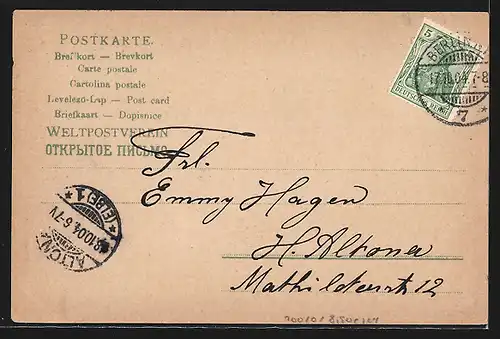 POSTKARTE.
Brefkort — Brevkort
Carte postale
Cartolina postale
Levelező-Lap — Post card
Briefkaart — Dopisnice
WELTPOSTVEREIN
ОТКРЫТОЕ ПИСЬМО
5
BERLIN
17.10.04 7-8
7 *
DEUTSCHES REICH
Frl.
Emmy Hagen
H. Altona
Mathildenstr. 12
ALTONA
8.10.04. 6-7V
* (ELBE) 1 *